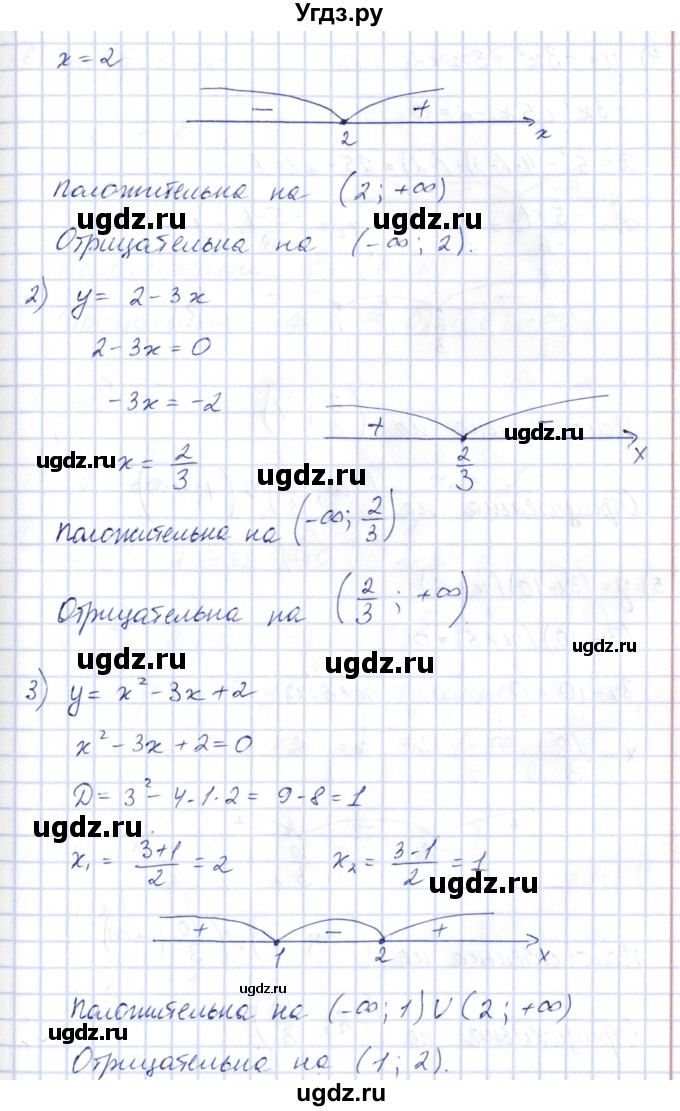 Угдз.ру
x = 2
− +
2 x
Положительна на (2; +∞)
ugdz.ru ugdz.ru
Отрицательна на (−∞; 2).
2) y = 2 − 3x
2 − 3x = 0
−3x = −2
+ − ugdz.ru
2/3 x
ugdz.ru x = 2/3
ugdz.ru
Положительна на (−∞; 2/3)
Отрицательна на (2/3; +∞)
ugdz.ru ugdz.ru ugdz.ru
3) y = x² − 3x + 2
x² − 3x + 2 = 0
D = 3² − 4·1·2 = 9 − 8 = 1
ugdz.ru
x₁ = (3+1)/2 = 2 x₂ = (3−1)/2 = 1
ugdz.ru
+ − +
1 2 x
ugdz.ru
Положительна на (−∞; 1) ∪ (2; +∞)
ugdz.ru
Отрицательна на (1; 2).
ugdz.ru